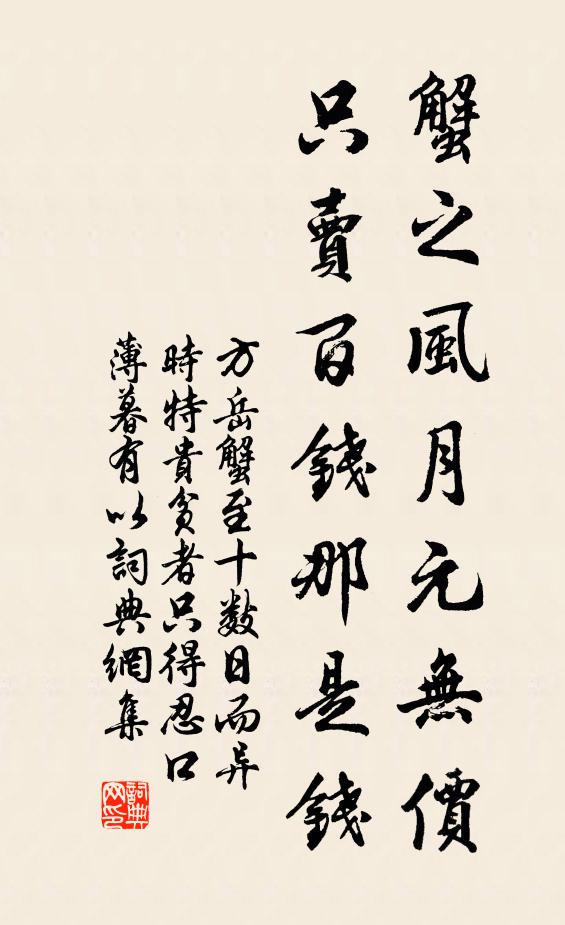 蟹之風月元無價
只賣百錢那是錢
方岳蟹至十数日而异
時特貴貧者只得忍口
薄暮有以詞典網集
詞典
网印